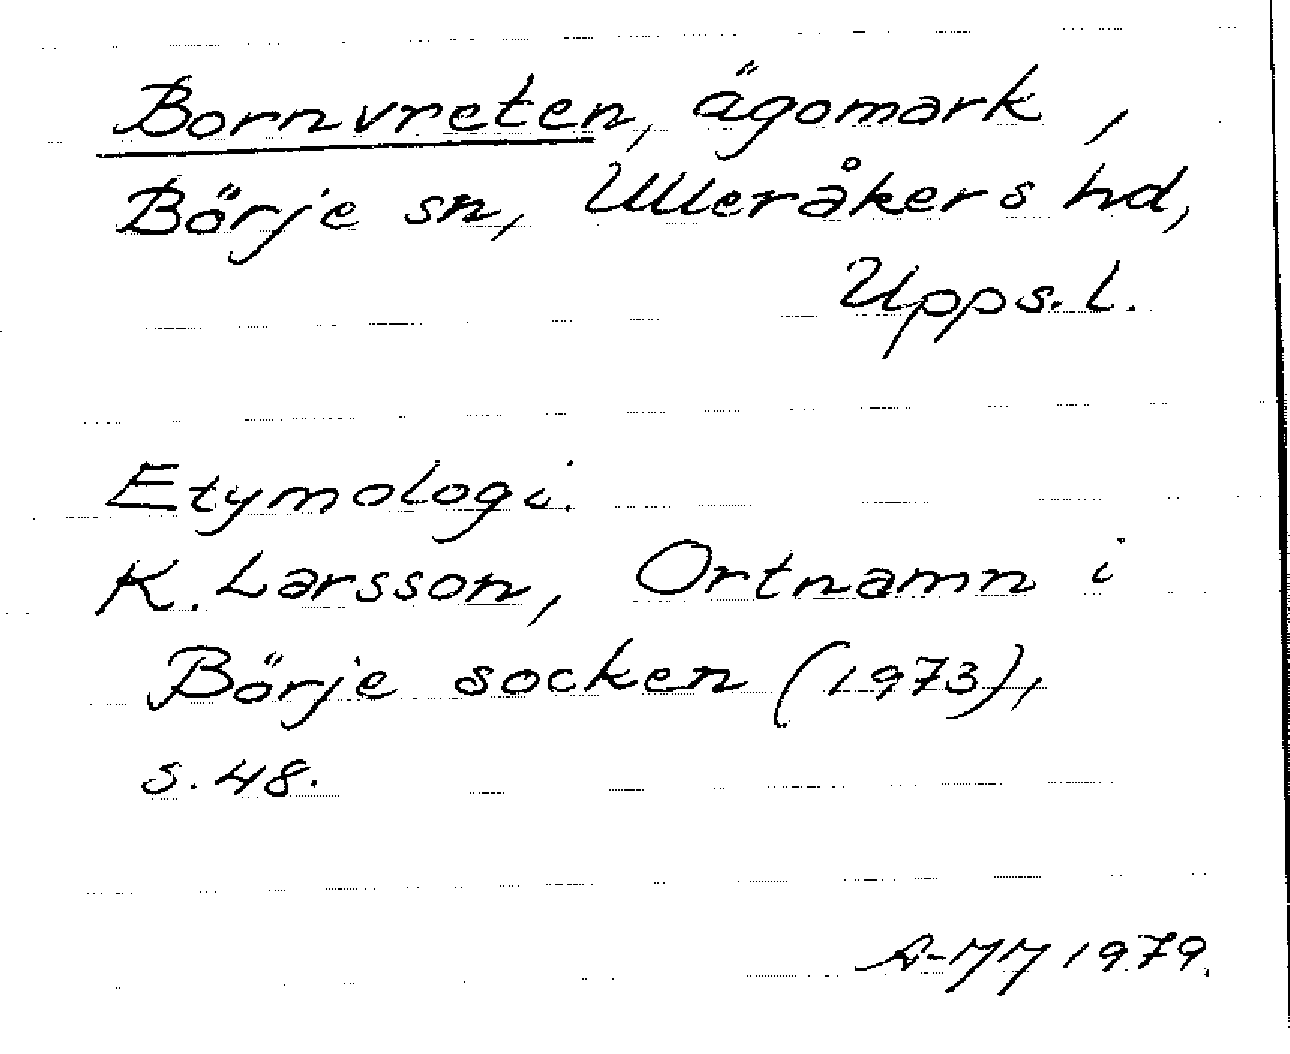 Bornvreten, ägomark,
Börje sn, Ulleråkers hd,
Upps. l.
Etymologi.
K. Larsson, Ortnamn i
Börje socken (1973),
s. 48.
1979.